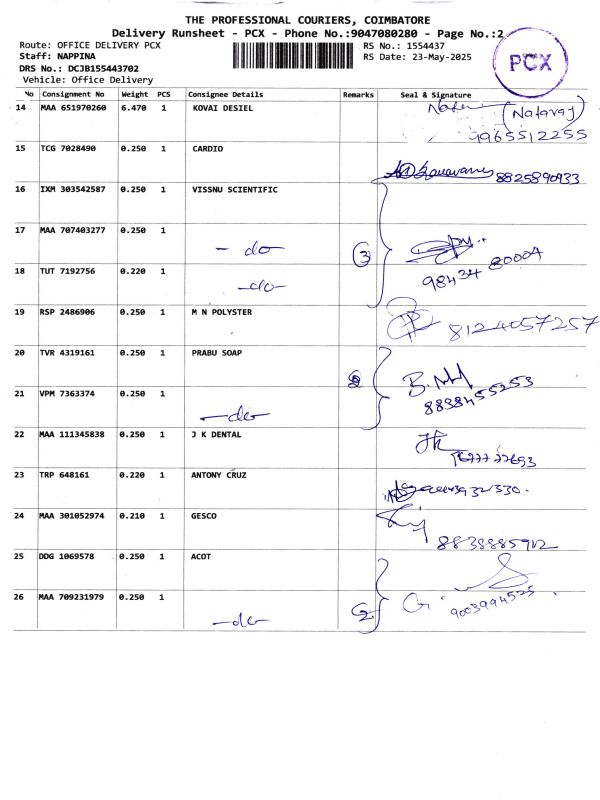 THE PROFESSIONAL COURIERS, COIMBATORE
Delivery Runsheet - PCX - Phone No.:9047080280 - Page No.:2
Route: OFFICE DELIVERY PCX
RS No.: 1554437
Staff: NAPPINA
RS Date: 23-May-2025
DRS No.: DCJB155443702
Vehicle: Office Delivery
PCX
No Consignment No Weight PCS Consignee Details Remarks Seal & Signature
14 MAA 651970260 6.470 1 KOVAI DESIEL
(Nataraj)
9965512255
15 TCG 7028490 0.250 1 CARDIO
8825890933
16 IXM 303542587 0.250 1 VISSNU SCIENTIFIC
17 MAA 707403277 0.250 1
- do -
3
98434 80004
18 TUT 7192756 0.220 1
-do-
19 RSP 2486906 0.250 1 M N POLYSTER
8124057257
20 TVR 4319161 0.250 1 PRABU SOAP
2
8838455253
21 VPM 7363374 0.250 1
-do-
22 MAA 111345838 0.250 1 J K DENTAL
23 TRP 648161 0.220 1 ANTONY CRUZ
24 MAA 301052974 0.210 1 GESCO
8838885912
25 DDG 1069578 0.250 1 ACOT
26 MAA 709231979 0.250 1
-do-
2
9003994525